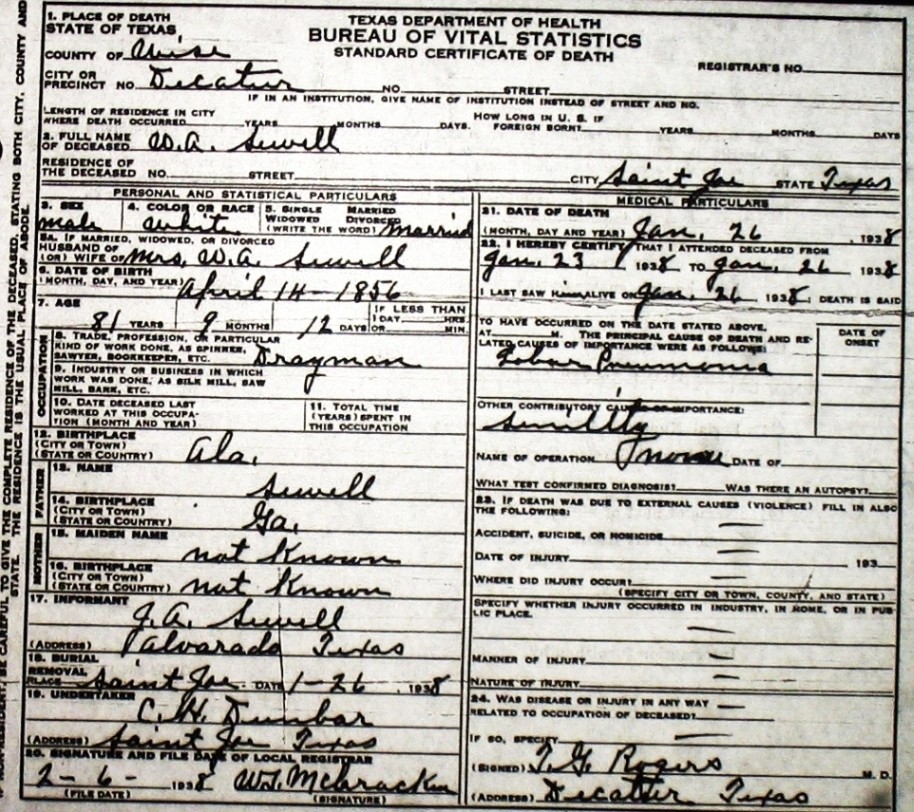 1. PLACE OF DEATH
STATE OF TEXAS
TEXAS DEPARTMENT OF HEALTH
BUREAU OF VITAL STATISTICS
STANDARD CERTIFICATE OF DEATH
COUNTY OF Wise
REGISTRAR'S NO.
CITY OR
PRECINCT NO. Decatur NO. STREET
IF IN AN INSTITUTION, GIVE NAME OF INSTITUTION INSTEAD OF STREET AND NO.
LENGTH OF RESIDENCE IN CITY
WHERE DEATH OCCURRED YEARS MONTHS DAYS. HOW LONG IN U. S. IF
FOREIGN BORN? YEARS MONTHS DAYS
2. FULL NAME
OF DECEASED W.A. Sewell
RESIDENCE OF
THE DECEASED NO. STREET CITY Saint Joe STATE Texas
PERSONAL AND STATISTICAL PARTICULARS
3. SEX
male
4. COLOR OR RACE
white
5. SINGLE MARRIED
WIDOWED DIVORCED
(WRITE THE WORD) Married
5A. IF MARRIED, WIDOWED, OR DIVORCED
HUSBAND OF
(OR) WIFE OF Mrs. W.A. Sewell
6. DATE OF BIRTH
(MONTH, DAY, AND YEAR) April 14-1856
7. AGE
81 YEARS 9 MONTHS 12 DAYS
IF LESS THAN
1 DAY HRS.
OR MIN.
OCCUPATION
8. TRADE, PROFESSION, OR PARTICULAR
KIND OF WORK DONE, AS SPINNER,
SAWYER, BOOKKEEPER, ETC. Drayman
9. INDUSTRY OR BUSINESS IN WHICH
WORK WAS DONE, AS SILK MILL, SAW
MILL, BANK, ETC.
10. DATE DECEASED LAST
WORKED AT THIS OCCUPA-
TION (MONTH AND YEAR)
11. TOTAL TIME
(YEARS) SPENT IN
THIS OCCUPATION
12. BIRTHPLACE
(CITY OR TOWN)
(STATE OR COUNTRY) Ala.
FATHER
13. NAME
Sewell
14. BIRTHPLACE
(CITY OR TOWN)
(STATE OR COUNTRY) Ga.
MOTHER
15. MAIDEN NAME
not Known
16. BIRTHPLACE
(CITY OR TOWN)
(STATE OR COUNTRY) not Known
17. INFORMANT
J.A. Sewell
(ADDRESS) Alvarado Texas
18. BURIAL
REMOVAL
PLACE Saint Joe DATE 1-26, 1938
19. UNDERTAKER
C. H. Dunbar
(ADDRESS) Saint Joe Texas
20. SIGNATURE AND FILE DATE OF LOCAL REGISTRAR
2-6- 1938
(FILE DATE) (SIGNATURE)
MEDICAL PARTICULARS
21. DATE OF DEATH
(MONTH, DAY AND YEAR) Jan. 26, 1938
22. I HEREBY CERTIFY THAT I ATTENDED DECEASED FROM
Jan. 23 1938 TO Jan. 26 1938
I LAST SAW HIM ALIVE ON Jan. 26 1938; DEATH IS SAID
TO HAVE OCCURRED ON THE DATE STATED ABOVE,
AT M. THE PRINCIPAL CAUSE OF DEATH AND RE-
LATED CAUSES OF IMPORTANCE WERE AS FOLLOWS:
DATE OF
ONSET
Lobar Pneumonia
OTHER CONTRIBUTORY CAUSES OF IMPORTANCE:
NAME OF OPERATION none DATE OF
WHAT TEST CONFIRMED DIAGNOSIS? WAS THERE AN AUTOPSY?
23. IF DEATH WAS DUE TO EXTERNAL CAUSES (VIOLENCE) FILL IN ALSO
THE FOLLOWING:
ACCIDENT, SUICIDE, OR HOMICIDE —
DATE OF INJURY — 193
WHERE DID INJURY OCCUR? —
(SPECIFY CITY OR TOWN, COUNTY, AND STATE)
SPECIFY WHETHER INJURY OCCURRED IN INDUSTRY, IN HOME, OR IN PUB-
LIC PLACE.
—
MANNER OF INJURY —
NATURE OF INJURY —
24. WAS DISEASE OR INJURY IN ANY WAY
RELATED TO OCCUPATION OF DECEASED? —
IF SO, SPECIFY —
(SIGNED) T. G. Rogers M. D.
(ADDRESS) Decatur Texas
STATE. THE RESIDENCE IS THE USUAL PLACE OF ABODE.
BE CAREFUL TO GIVE THE COMPLETE RESIDENCE OF THE DECEASED, STATING BOTH CITY, COUNTY AND